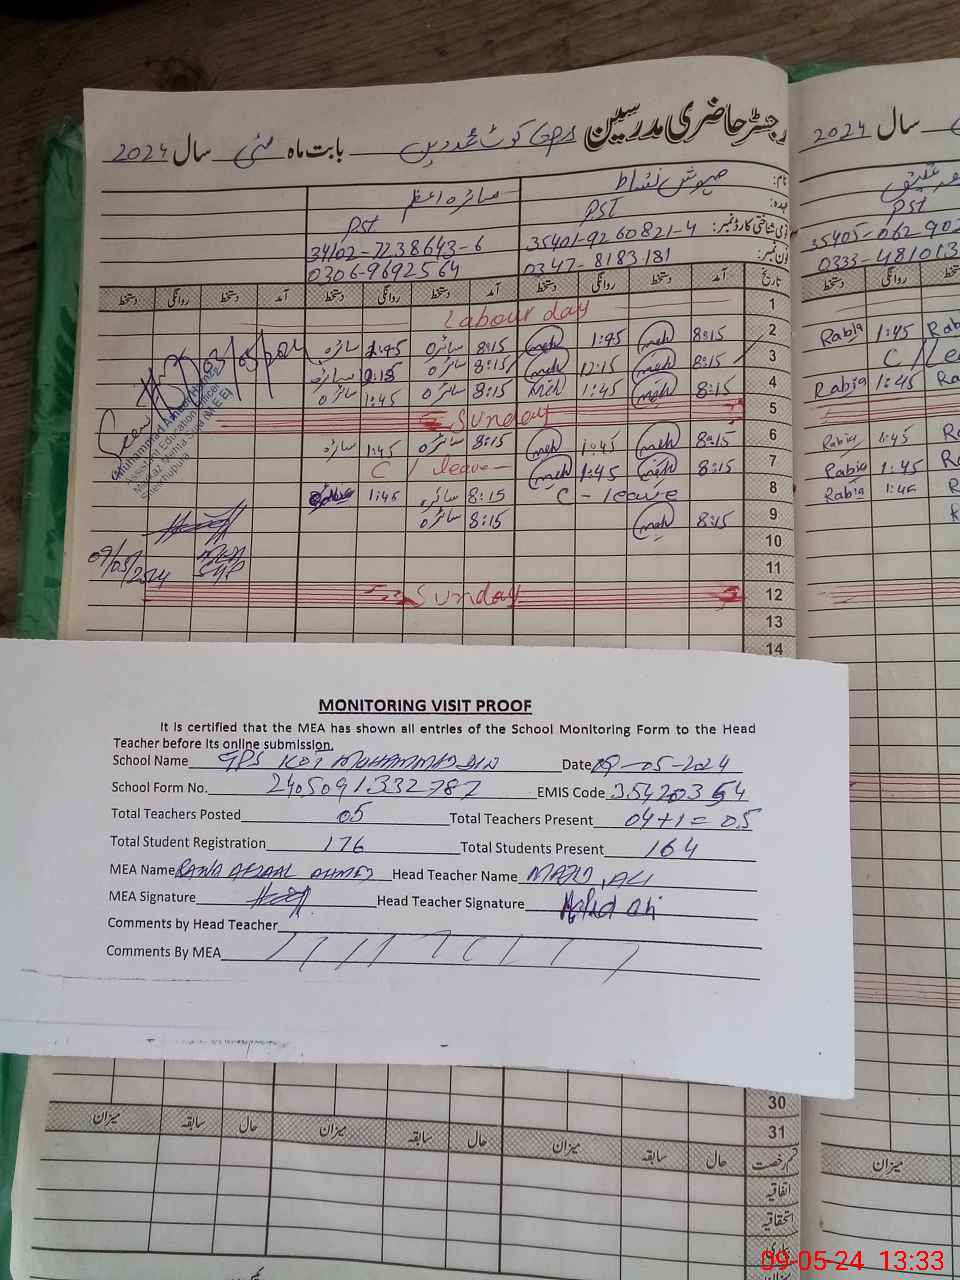 رجسٹر حاضری مدرسین GPS کوٹ محمد دین بابت ماہ مئی سال 2024
سال 2024
نام: مہوش نشاط صائرہ اعظم
عہدہ: PST PST
PST
قومی شناختی کارڈ نمبر: 35401-9260821-4 34102-7238643-6
فون نمبر: 0347-8183181 0306-9692564
35405-062902
0333-481013
تاریخ آمد دستخط روانگی دستخط آمد دستخط روانگی دستخط آمد دستخط روانگی دستخط
روانگی دستخط
1 Labour day
2 8:15 meh 1:45 meh 8:15 سائرہ 1:45 سائرہ
Rabia 1:45 Rab
3 8:15 meh 12:15 meh 8:15 سائرہ
C / lea
4 8:15 meh 1:45 meh 8:15 سائرہ 1:45 سائرہ
Rabia 1:45 Ra
5 Sunday
6 8:15 meh 1:45 meh 8:15 سائرہ 1:45 سائرہ
Rabia 1:45 R
7 8:15 meh 1:45 meh C / leave
Rabia 1:45 Ra
8 C - leave 8:15 سائرہ 1:45
Rabia 1:45 R
9 8:15 meh 8:15 سائرہ
10
11
12 Sunday
13
14
Muhammad
Assistant Education Officer
Markaz (MEE)
Sheikhupura
09/05/2024
MEA
SKP
MONITORING VISIT PROOF
It is certified that the MEA has shown all entries of the School Monitoring Form to the Head
Teacher before its online submission.
School Name GPS KOT MUHAMMAD DIN Date 09-05-2024
School Form No. 240509133278​7 EMIS Code 35420354
Total Teachers Posted 05 Total Teachers Present 04+1=05
Total Student Registration 176 Total Students Present 164
MEA Name RANA AFZAAL AHMED Head Teacher Name MAJID ALI
MEA Signature Head Teacher Signature Majid Ali
Comments by Head Teacher
Comments by MEA
30
31
قسم رخصت حال سابقہ میزان حال سابقہ میزان حال سابقہ میزان
میزان
اتفاقیہ
استحقاقیہ
09-05-24 13:33